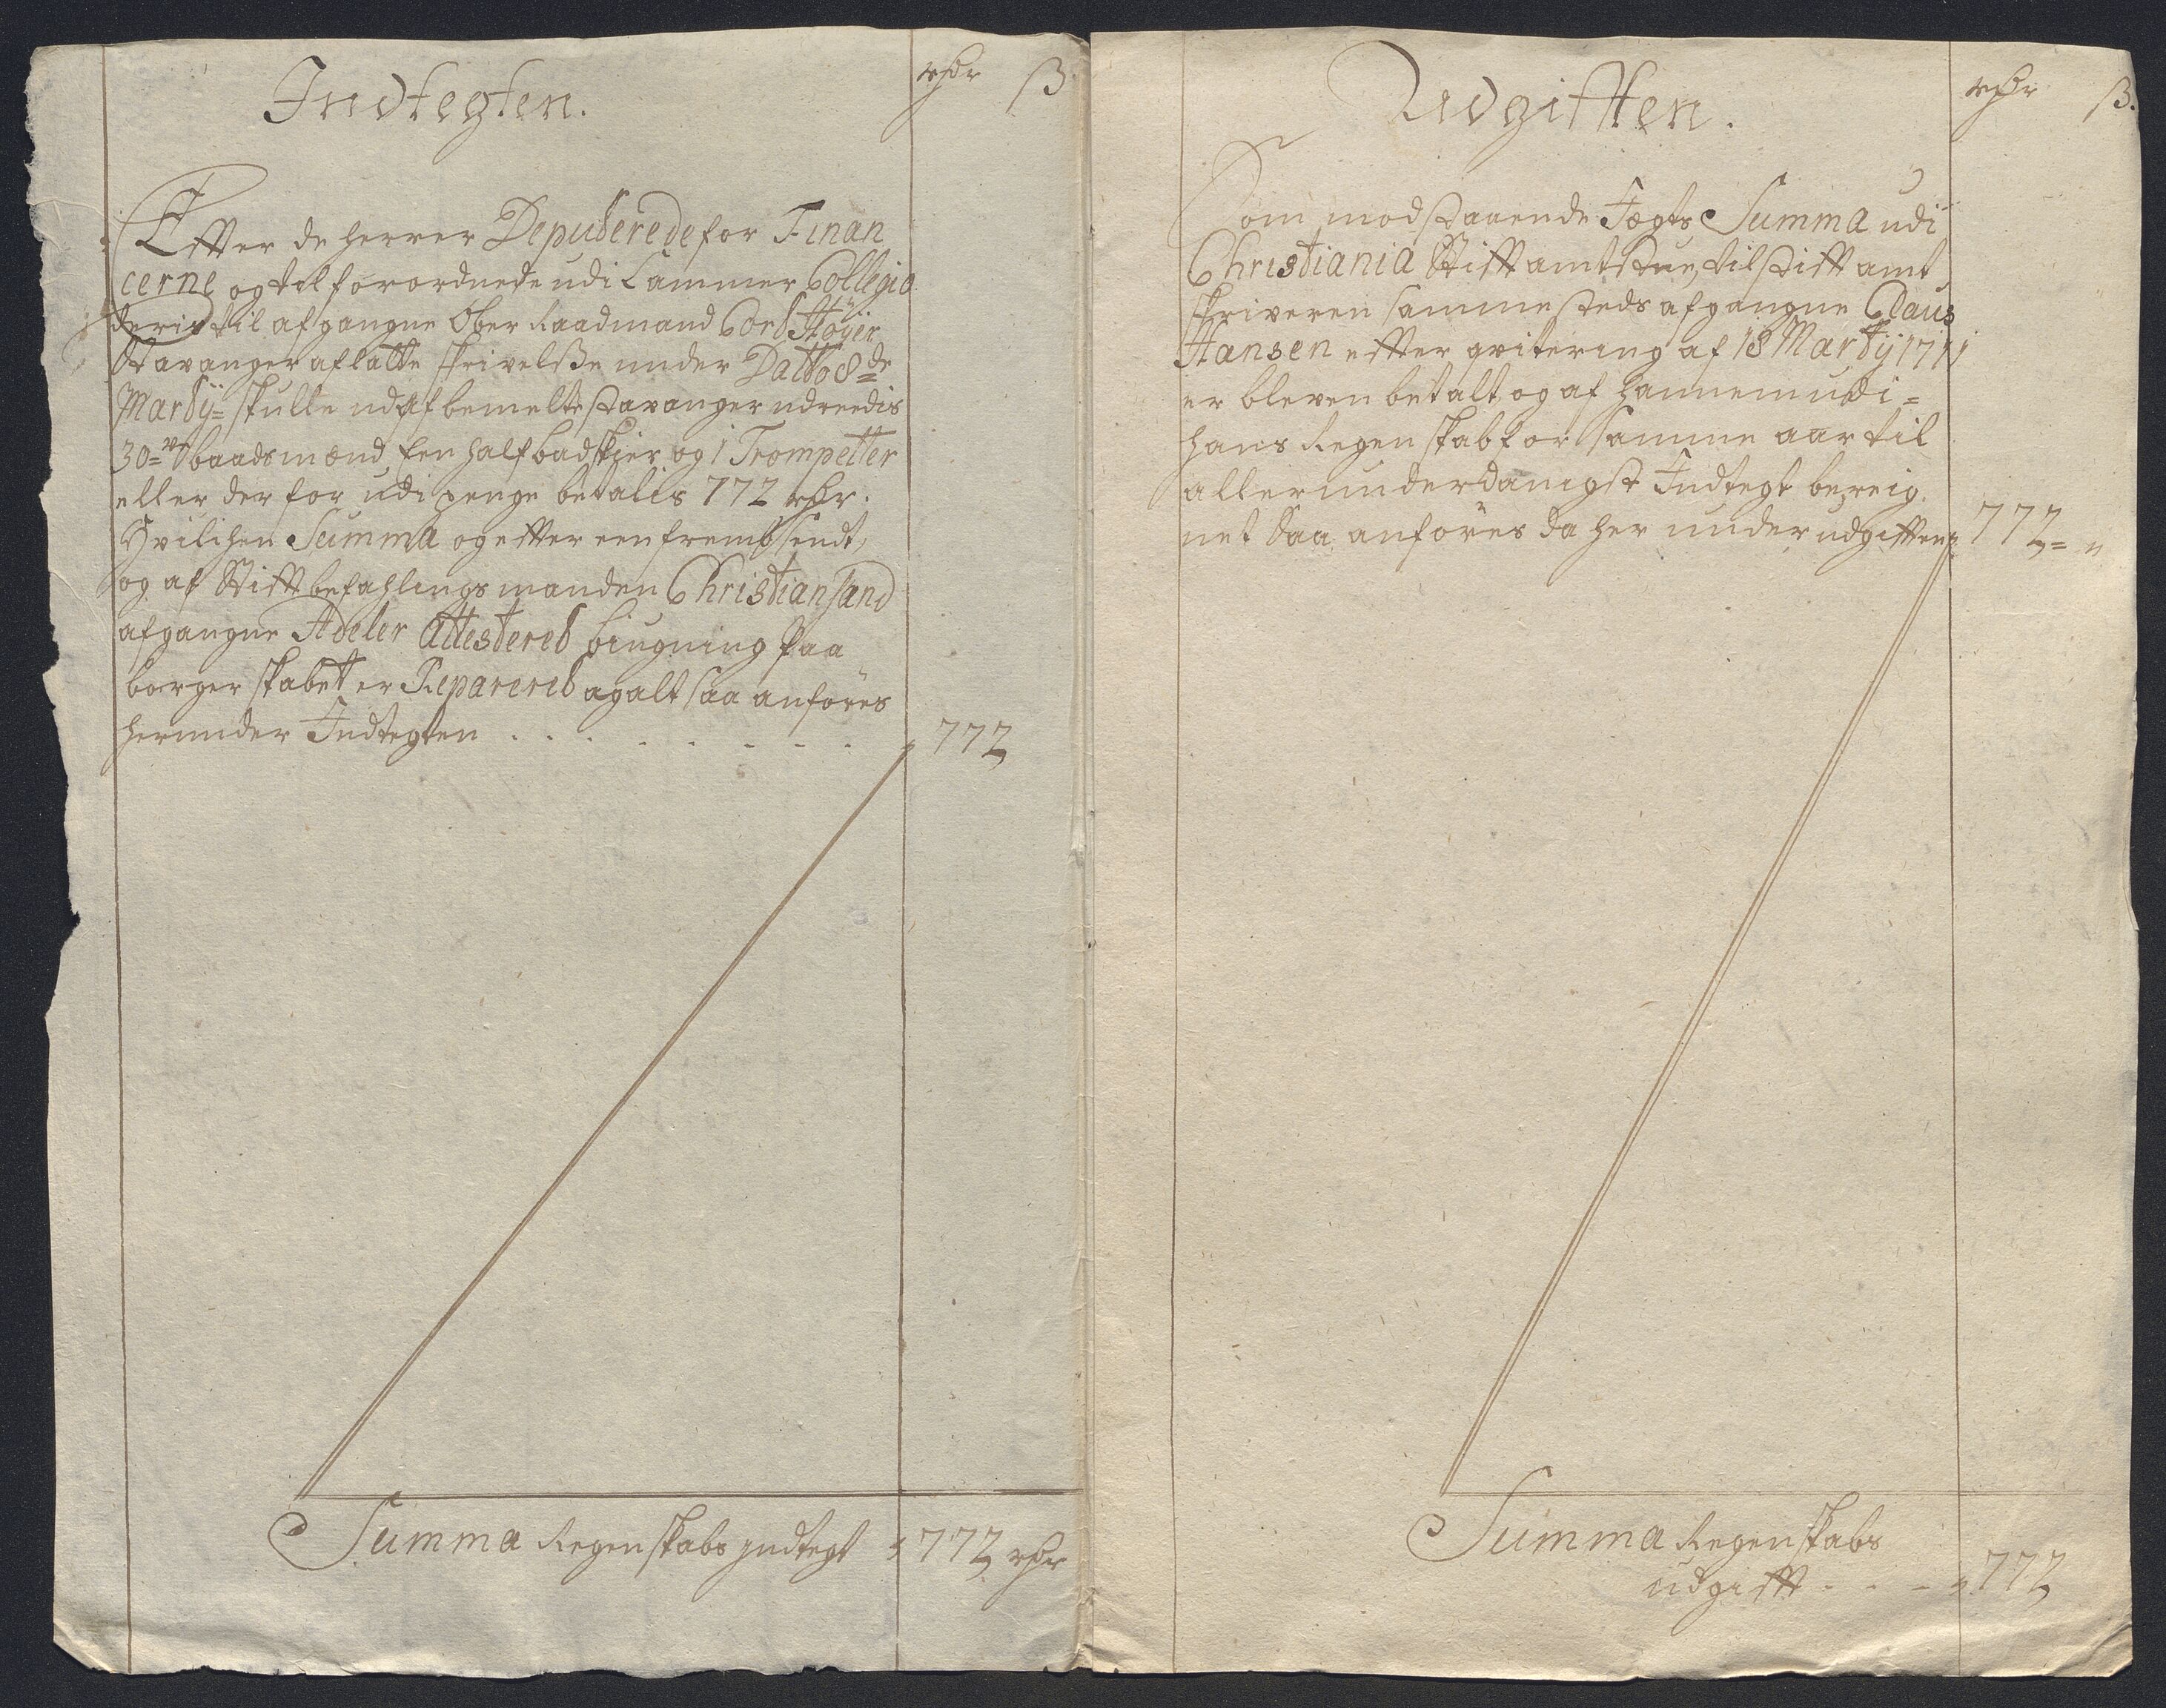 Indtegten.
rhdr ß
Effter de herrer Deputerede for Finan
cerne og tilforordnede udi Cammer Collegio
deris til afgangne Ober Raadmand Cort Høÿer
Stavanger aflatte skrivelsse under Datto 8de
Martÿ= skulle udaf bemelte Stavanger udredis
30= baadsmænd Een half badskier og 1 Trompetter
eller der for udi penge betalis 772 rhdr.
Hvilchen Summa og effter een frembsendt,
og af Stifftbefahlingsmanden Christiansand
afgangne Adeler Attesteret ligning paa
borgerskabet er Reparerit altsaa anføres
herunder Indtegten . . . . . . . . 772
Summa Regenskabs Indtegt 772 rhdr
Udgifften.
rhdr ß.
Som modstaaende Indtegts Summa udi
Christiania Stifftamtstue, til Stifftamt
skriveren sammesteds afgangne Claus
Hansen effter qvitering af 18 Martÿ 1711
er bleven betalt, og af hannem udi=
hans Regenskab for samme aar til
allerunderdanigst Indtegt bereig
net Saa anføres da her under udgifften 772= "
Summa Regenskabs
udgifft - - - 772